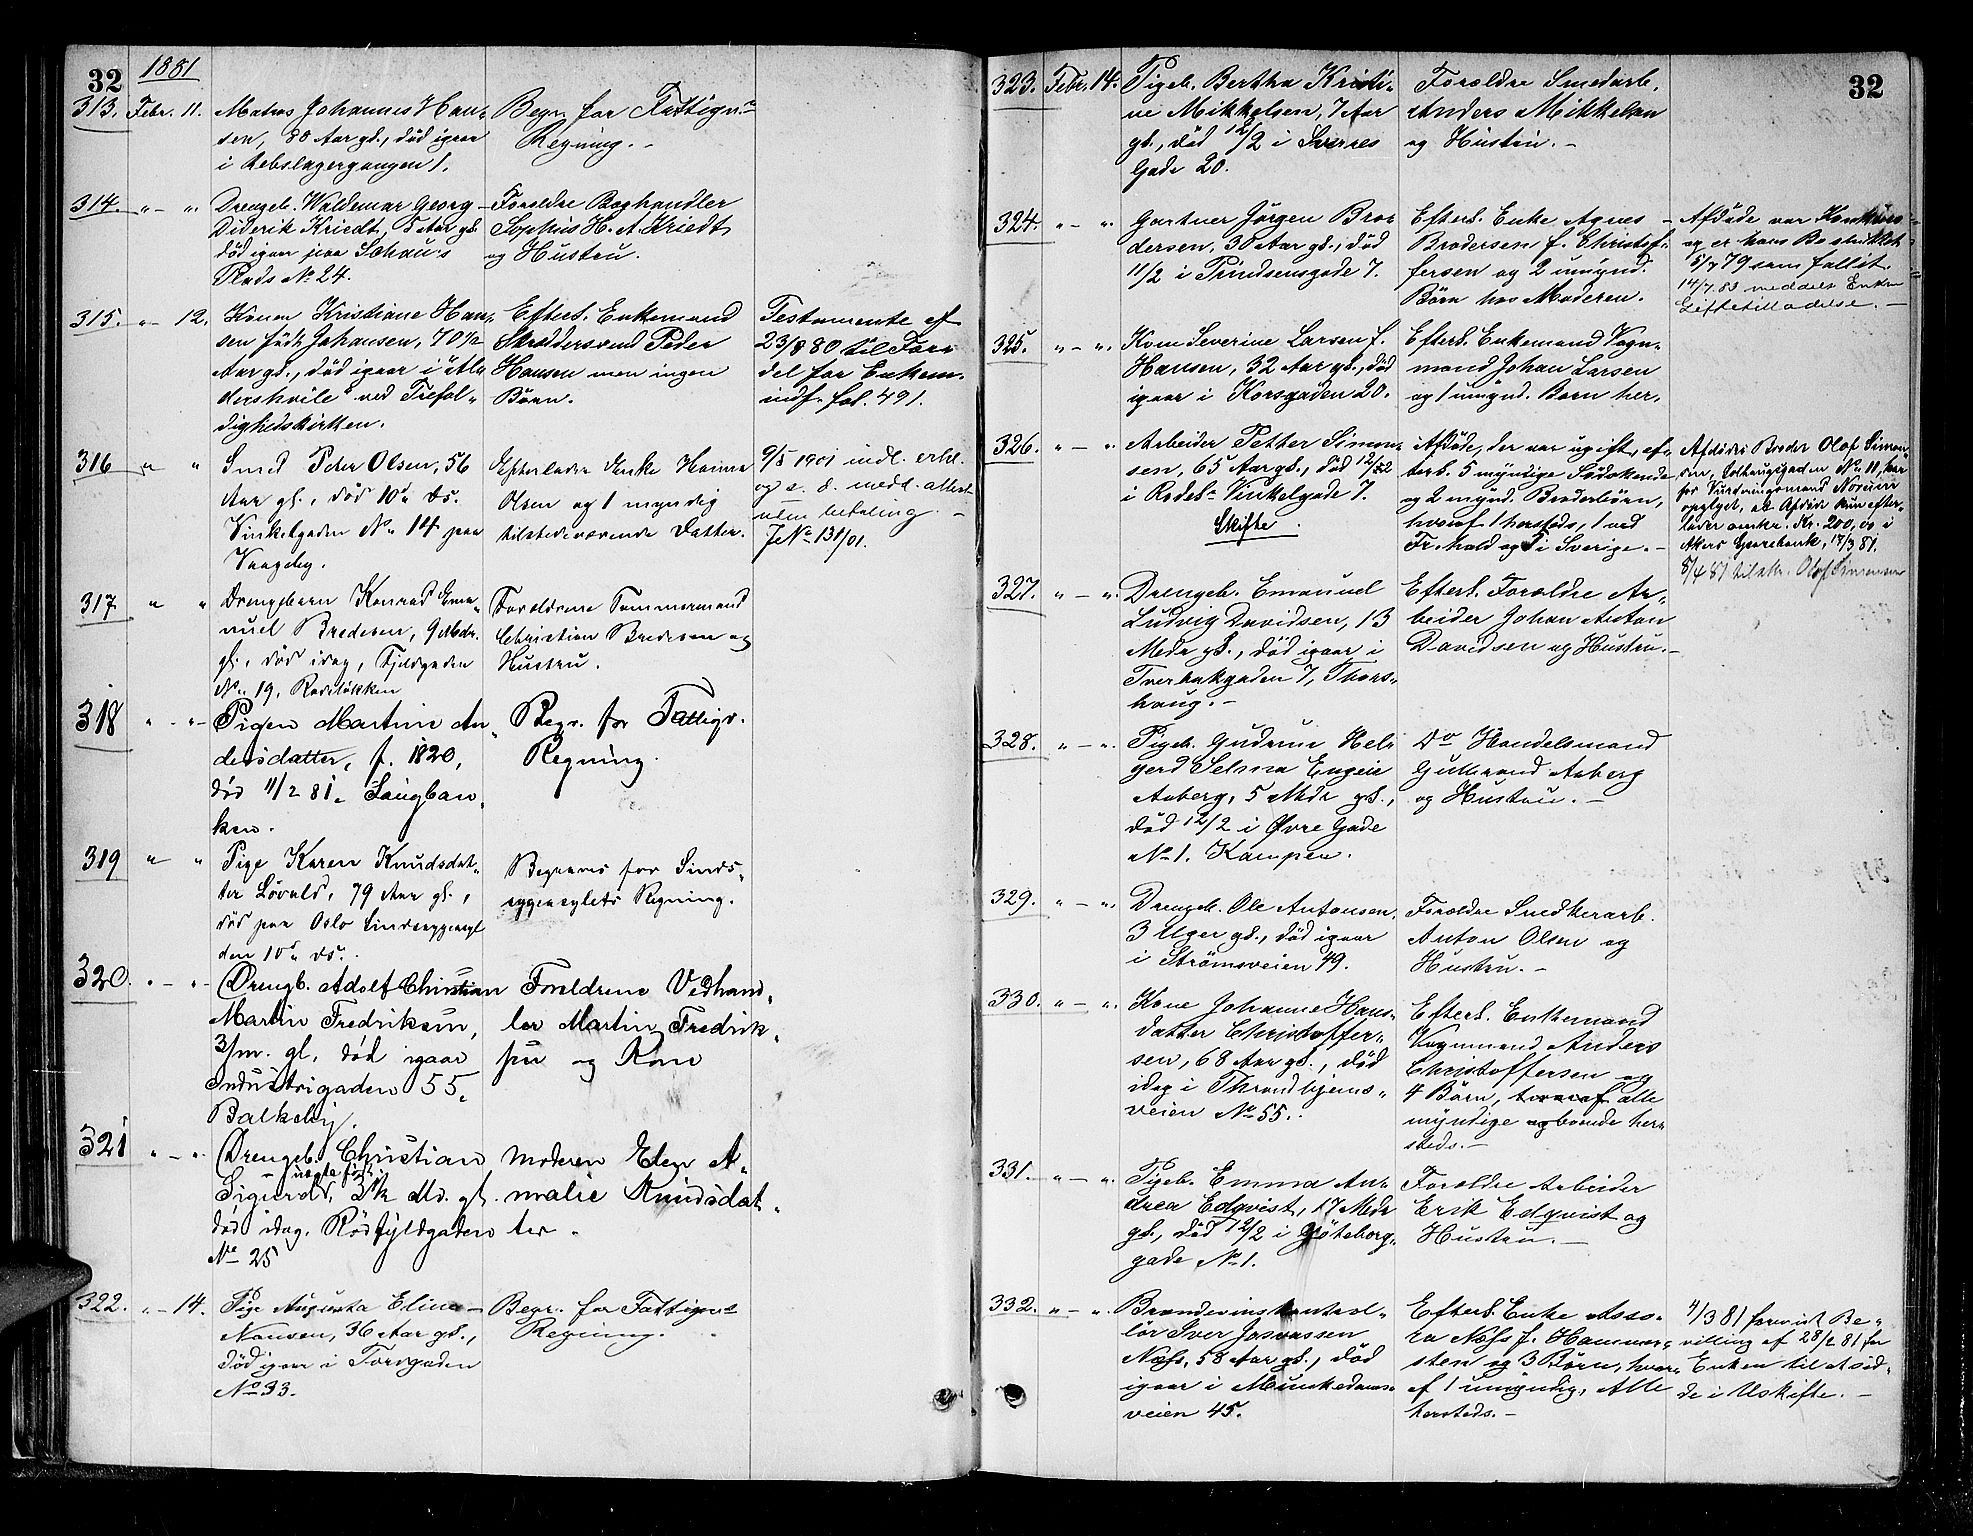 32
1881
313. Febr. 11. Matros Johannes Han-
sen, 80 Aar gl., død igaar
i Rebslagergangen 1.
Begr. for Fattigv.
Regning. -
314. " - " Drengeb. Waldemar Georg
Diderik Kriedt, 5 Aar gl.
død igaar paa Schou's
Plads No 24.
Forældre Boghandler
Sophus H. A. Kriedt
og Hustru.
315. " - 12. Konen Kristiane Han-
sen født Johansen, 70½
Aar gl., død igaar i "Al-
dershvile" ved Trefol-
dighedskirken.
Efterl. Enkemand
Skræddersvend Peder
Hansen men ingen
Børn.
Testamente af
23/8 80 til For-
del for Enkem.
indf. fol. 491.
316 " " Smed Peter Olsen, 56
Aar gl., død 10de ds.
Vinkelgaden No 14 paa
Vaageby.
Efterladte Enke
Olsen og 1 myndig
tilstedeværende Datter.
9/5 1901 indl. erkl.
og s. d. medd. attest
uden betaling. -
J No 131/01.
317 " " Drengebarn Konrad Ema-
nuel Bredesen, 9 Mdr.
gl., død idag, Fjeldgaden
No 19, Rodeløkken
Forældrene Tømmermand
Christian Bredesen og
Hustru.
318 " - " Pigen Martine An-
dersdatter, f. 1820,
død 11/2 81. Saugban-
ken.
Begr. for Fattigv.
Regning.
319 " " Pige Karen Knudsdat-
ter Løvald, 79 Aar gl.,
død paa Oslo Sindssygeasyl
den 10de ds.
Begraves for Sinds-
sygeasylets Regning.
320. " - " Drengb. Adolf Christian
Martin Fredriksen,
3/m. gl. død igaar
Industrigaden 55,
Balkeby.
Forældrene Vedhand-
ler Martin Fredrik-
sen og Kone
321 " - " Drengeb. Christian
- uægte født -
Sigurd, 3½ Md. gl.
død idag. Rødfyldgaden
No 25
Moderen Elen A-
malie Knudsdat-
ter.
322. " - 14. Pige Augusta Eline
Nansen, 36 Aar gl.,
død igaar i Torvgaden
No 33.
Begr. for Fattigv.
Regning.
32
323. Febr. 14. Pigeb. Bertha Kristi-
ne Mikkelsen, 7 Aar
gl., død 12/2 i Sverres
Gade 20.
Forældre Smedarb.
Anders Mikkelsen
og Hustru. -
324. " - " Gartner Jørgen Bro-
dersen, 30 Aar gl., død
11/2 i Prindsensgade 7.
Efterl. Enke Agnes
Brodersen f. Christof-
fersen og 2 umynd.
Børn hos Moderen.
Afdøde var
og er hans Bo
5/7 79 som fallit.
14/7 83 meddelt Enken
Giftetilladelse. -
325. " - " Kone Severine Larsen f.
Hansen, 32 Aar gl., død
igaar i Korsgaden 20.
Efterl. Enkemand Vogn-
mand Johan Larsen
og 1 umynd. Barn her.
326. " - " Arbeider Petter Simon-
sen, 65 Aar gl., død 12/2
i Rodel. Vinkelgade 7.
Skifte.
Afdøde, der var ugift, ef-
terl. 5 myndige Sødskende
og 2 mynd. Broderbørn,
hvoraf 1 hersteds, 1 ved
Fr.hald og 5 i Sverige. -
Afdødes Broder Olof Simon-
sen, No 11, har
for Vurderingsmand
opgivet, at Afdøde kun efter-
lader omkr. Kr. 200,00 i
Akers Sparebank, 17/3 81.
8/4 81 tilskr. Olof Simonsen
327. " - " Drengeb. Emanuel
Ludvig Davidsen, 13
Mdr gl., død igaar i
Tverbakgaden 7, Thors-
haug. -
Efterl. Forældre Ar-
beider Johan Anton
Davidsen og Hustru. -
328. " - " Pigeb. Gudrun Hel-
gerd Selma Eugeie
Aaberg, 5 Mdr gl.,
død 12/2 i Øvre Gade
No 1. Kampen.
Do Handelsmand
Gulbrand Aaberg
og Hustru. -
329. " - " Drengeb. Ole Antonsen
3 Uger gl., død igaar
i Strømsveien 49.
Forældre Snedkerarb.
Anton Olsen og
Hustru. -
330. " - " Kone Johanne Hans-
datter Christoffer-
sen, 68 Aar gl., død
idag i Throndhjems-
veien No 55.
Efterl. Enkemand
Vognmand Anders
Christoffersen og
4 Børn, hvoraf alle
myndige og boende her-
steds. -
331. " - " Pigeb. Emma An-
drea Edqvist, 17 Mdr
gl., død 12/2 i Gøteborg-
gade No 1.
Forældre Arbeider
Erik Edqvist og
Hustru. -
332. " - " Brændevinskontrol-
lør Iver Jasvassen
Næss, 58 Aar gl., død
igaar i Munkedams-
veien 45.
Efterl. Enke Asso-
ra Næss f. Hammer-
sten og 3 Børn, hvor-
af 1 umyndig, Alle
hersteds. -
4/3 81 forevist Be-
villing af 28/2 81 for
Enken til at sid-
de i Uskifte. -